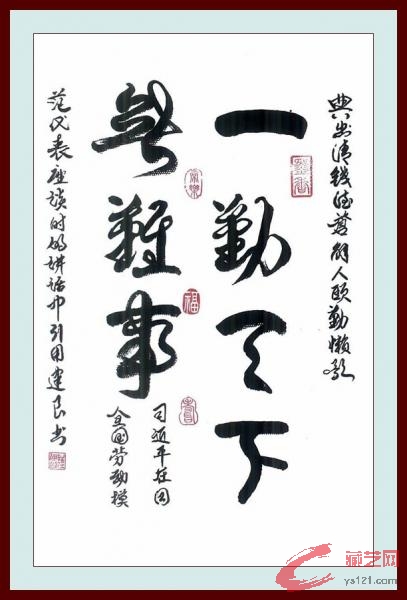 典出清錢德蒼解人頤勤懶歌
一勤天下
無難事
习近平在同
全国劳动模
范代表座谈时的讲话中引用建良书
福
藏艺网
ys121.com